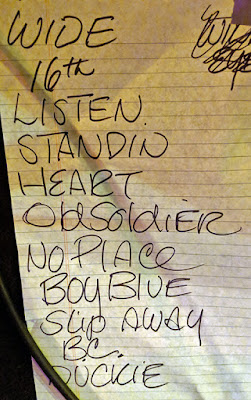 WIDE
16th
LISTEN.
STANDIN
HEART
Old SoldiER
NO PLACE
BOY BLUE
Slip AWAY
B.C.
DUCKIE